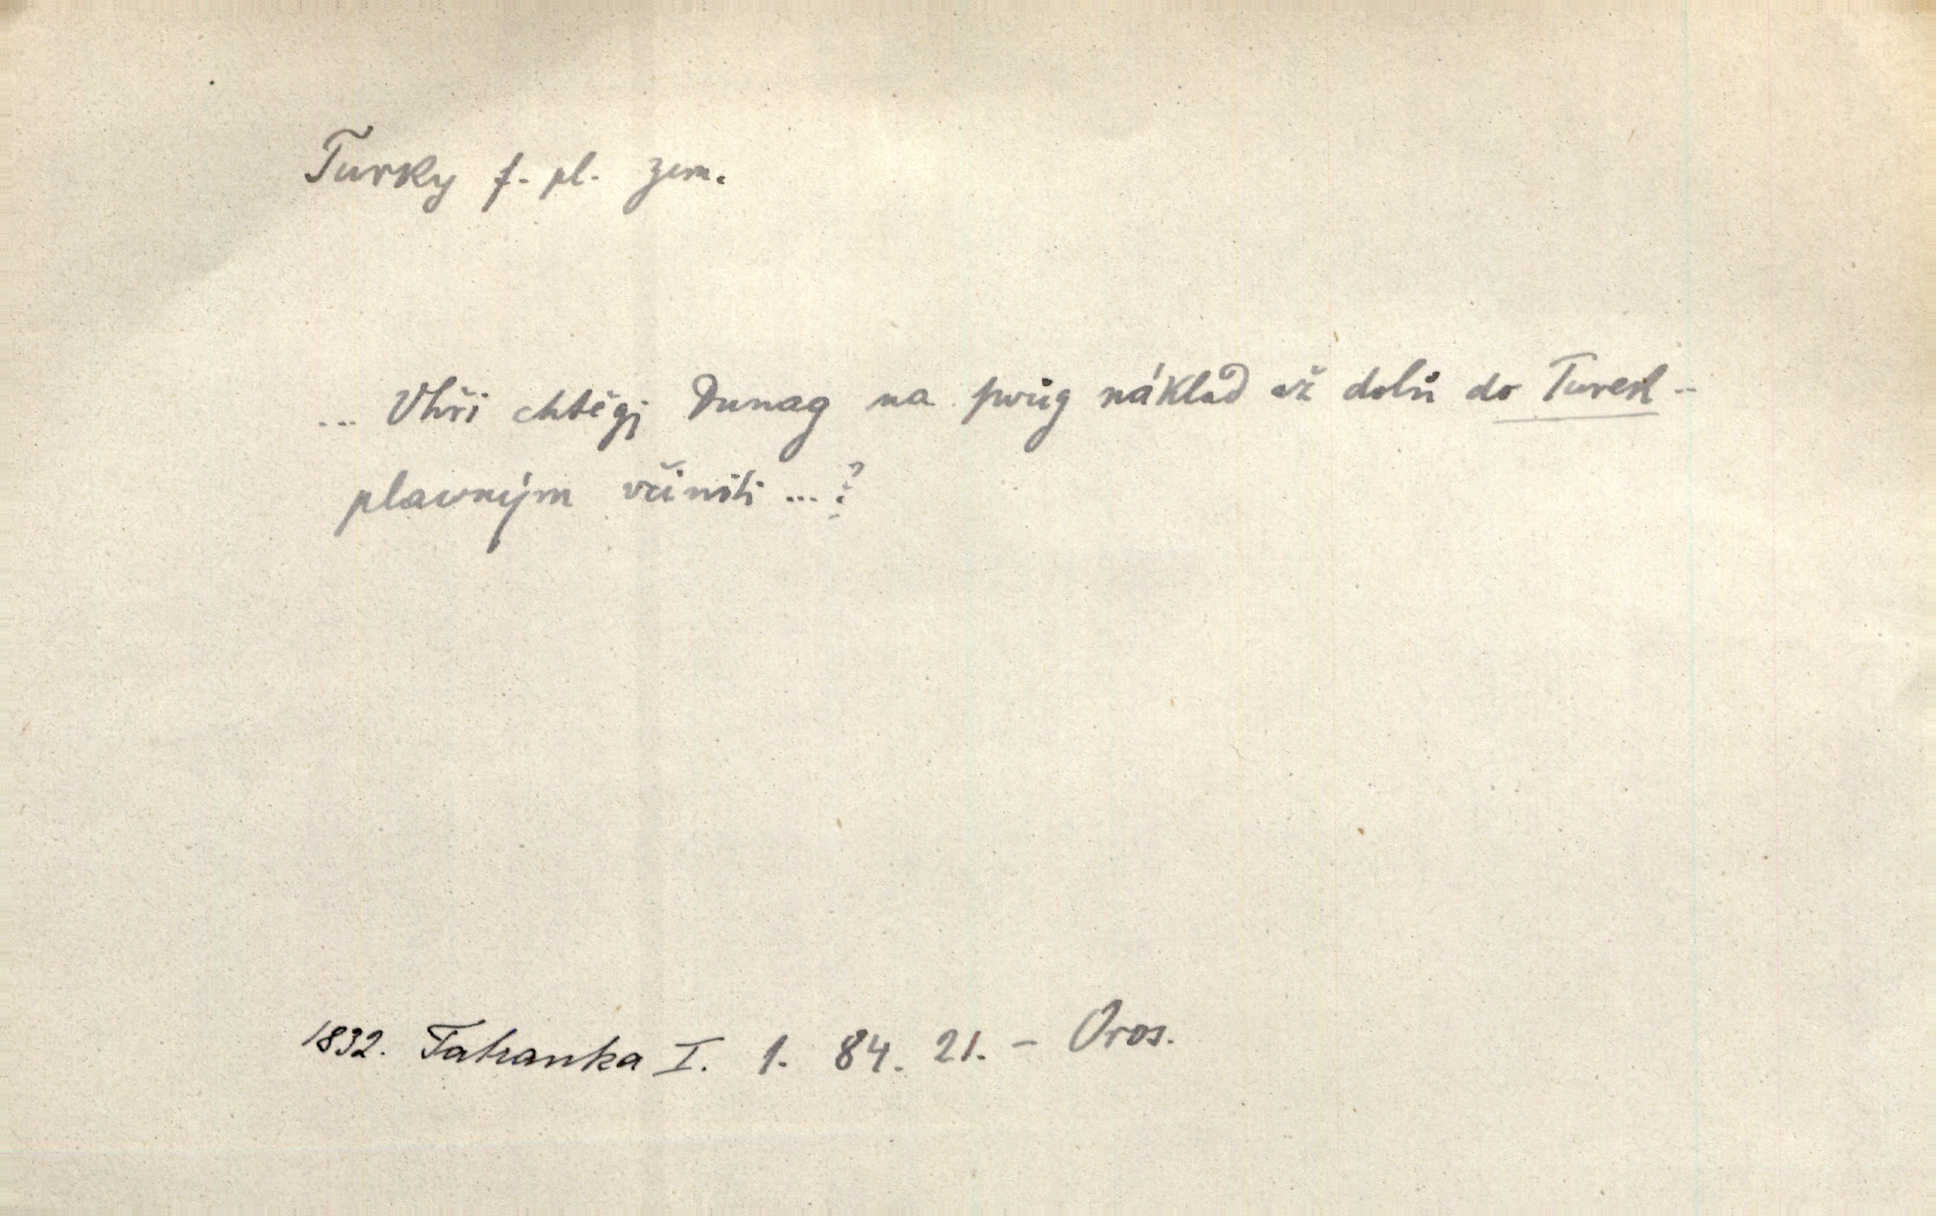 Turky f. pl. zem.
... Vhři chtěgj Dunag na swůg náklad až dolů do Turek -
plawným včiniti ...?
1832. Tahanka I. 1. 84. 21. - Oros.